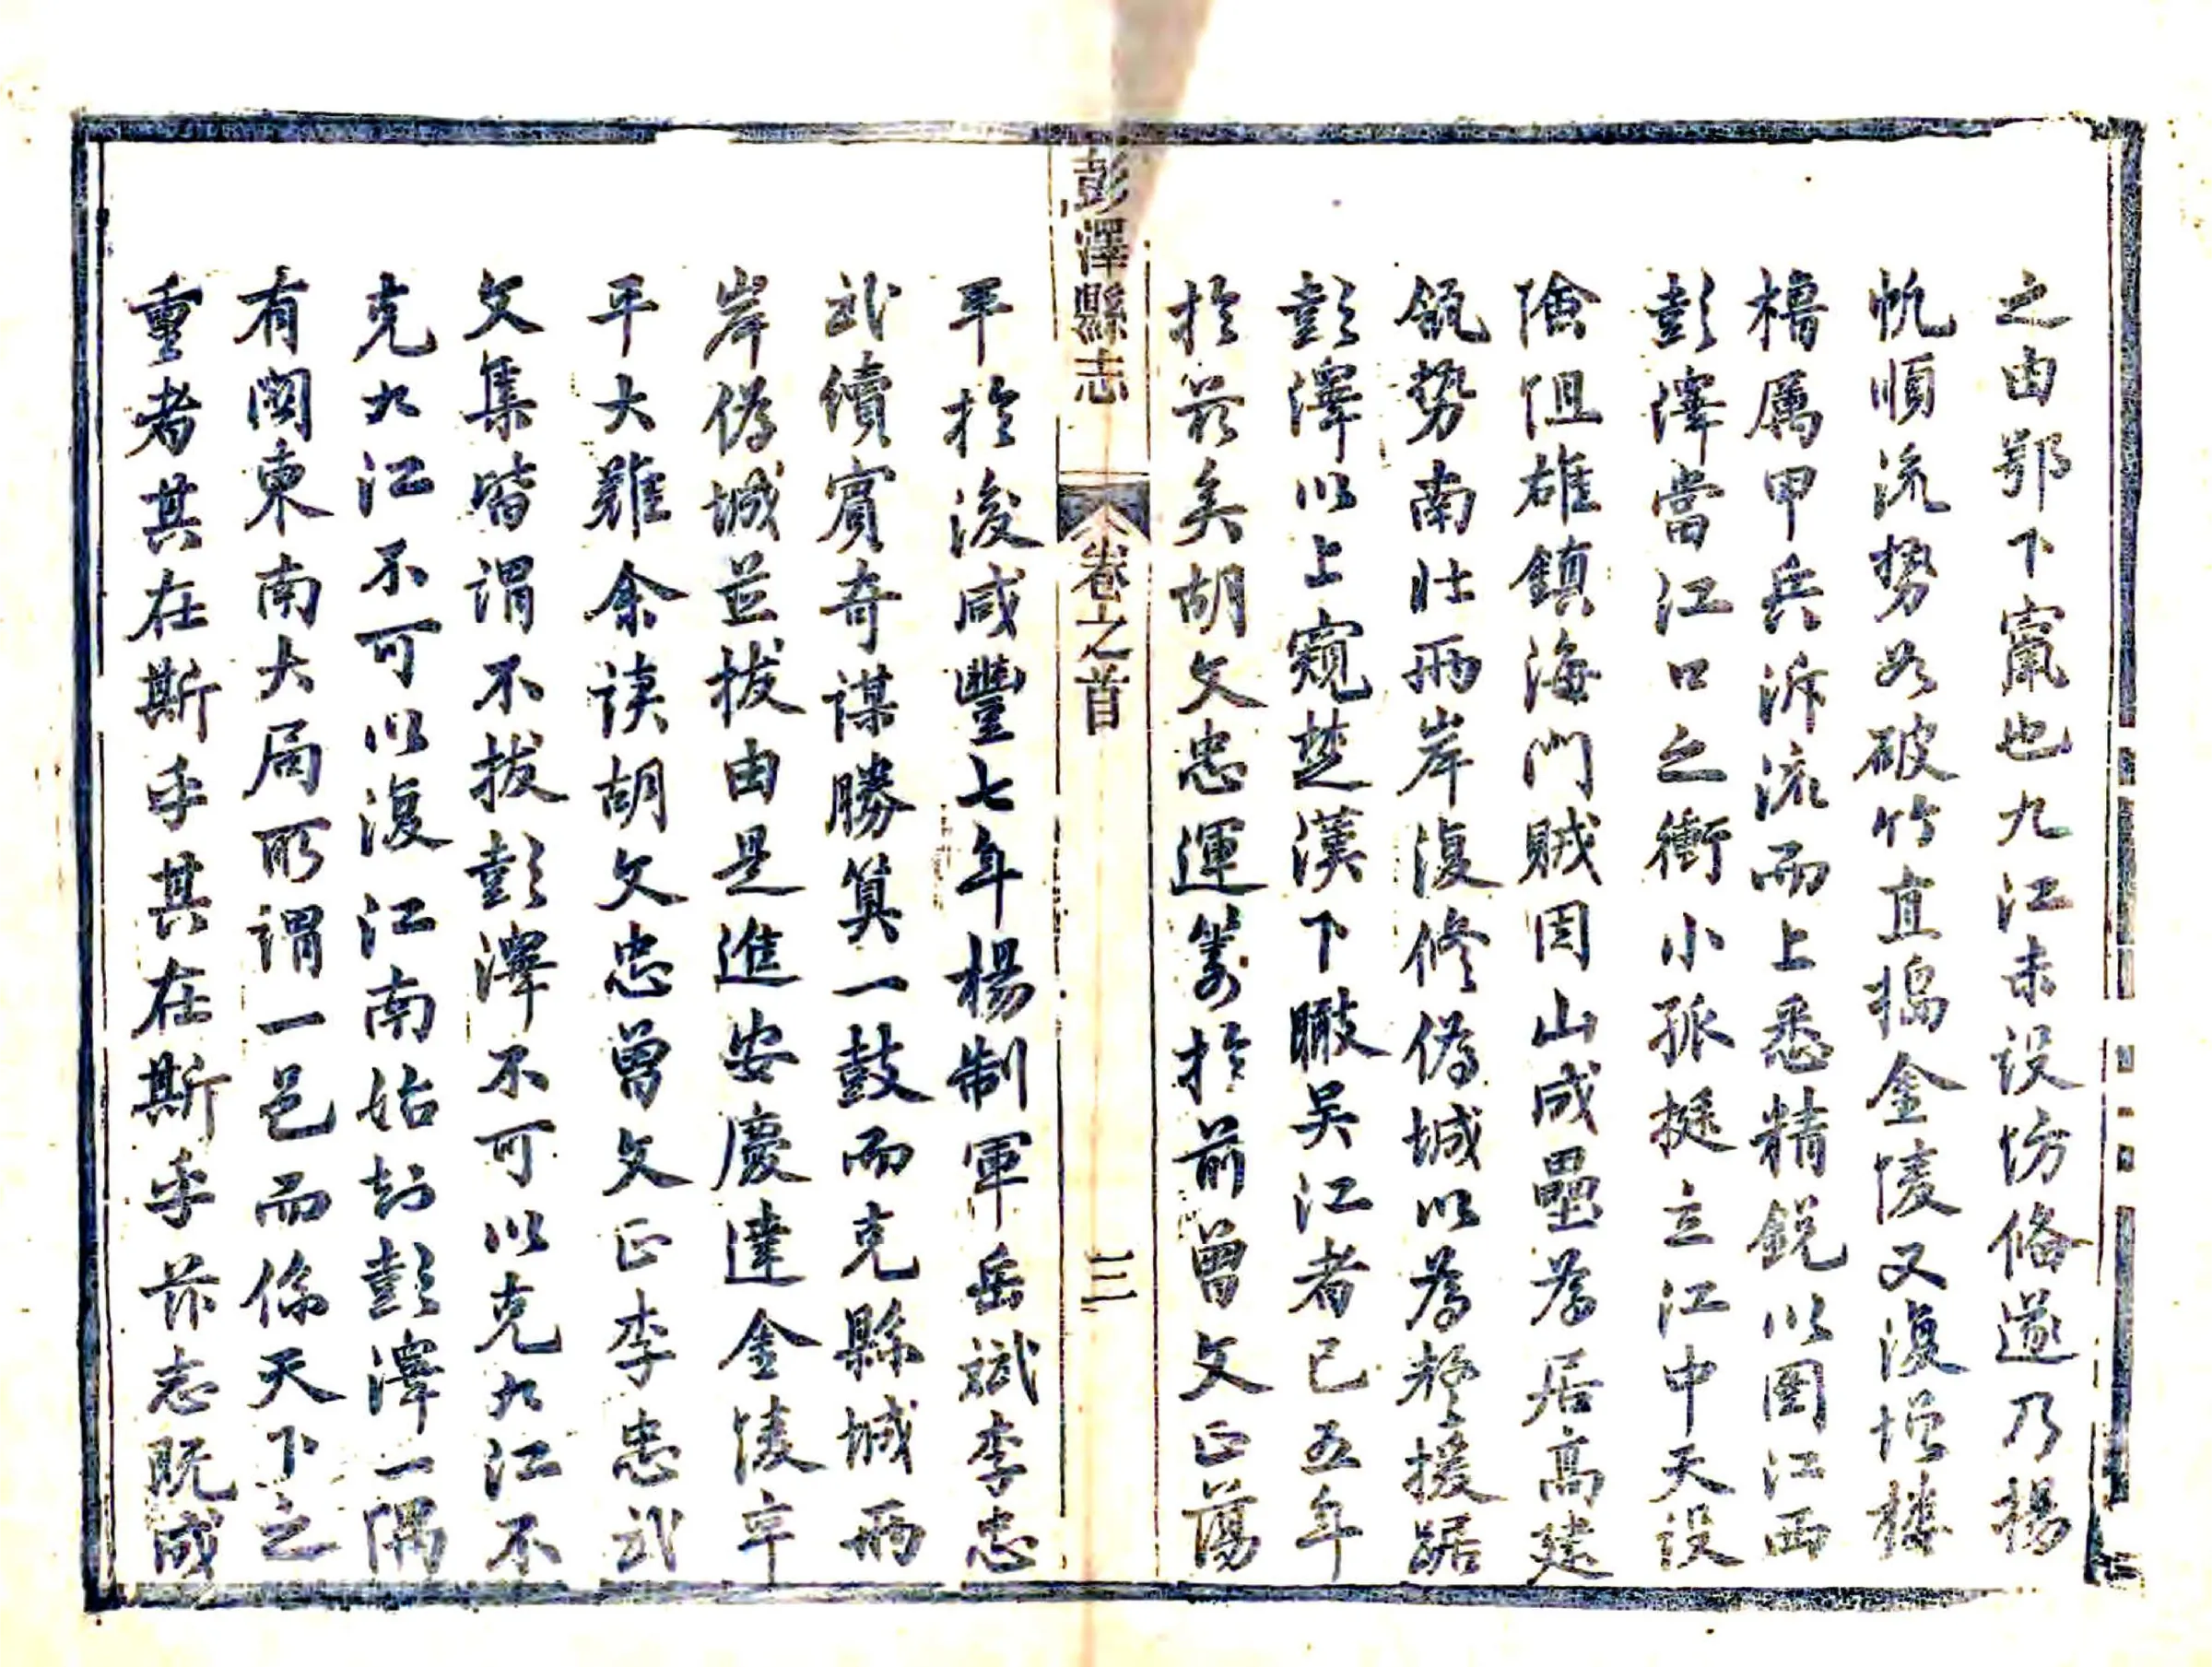 之由鄂下竄也九江未設防俻遂乃揚
帆順流勢如破竹直搗金陵又復增樓
櫓厲甲兵泝流而上悉精銳以圖江西
彭澤當江口之衝小孤挺立江中天設
險阻雄鎮海門賊因山成壘為居高建
瓴勢南北兩岸復修偽城以為犄援踞
彭澤以上窺楚漢下瞰吳江者已五年
於茲矣胡文忠運籌於前曾文正蕩
彭澤縣志 卷之首 三
平於後咸豐七年楊制軍岳斌李忠
武續賓奇謀勝算一鼓而克縣城兩
岸偽城並拔由是進安慶達金陵卒
平大難余读胡文忠曾文正李忠武
文集皆謂不拔彭澤不可以克九江不
克九江不可以復江南始知彭澤一隅
有関東南大局所謂一邑而係天下之
重者其在斯乎其在斯乎茲志既成